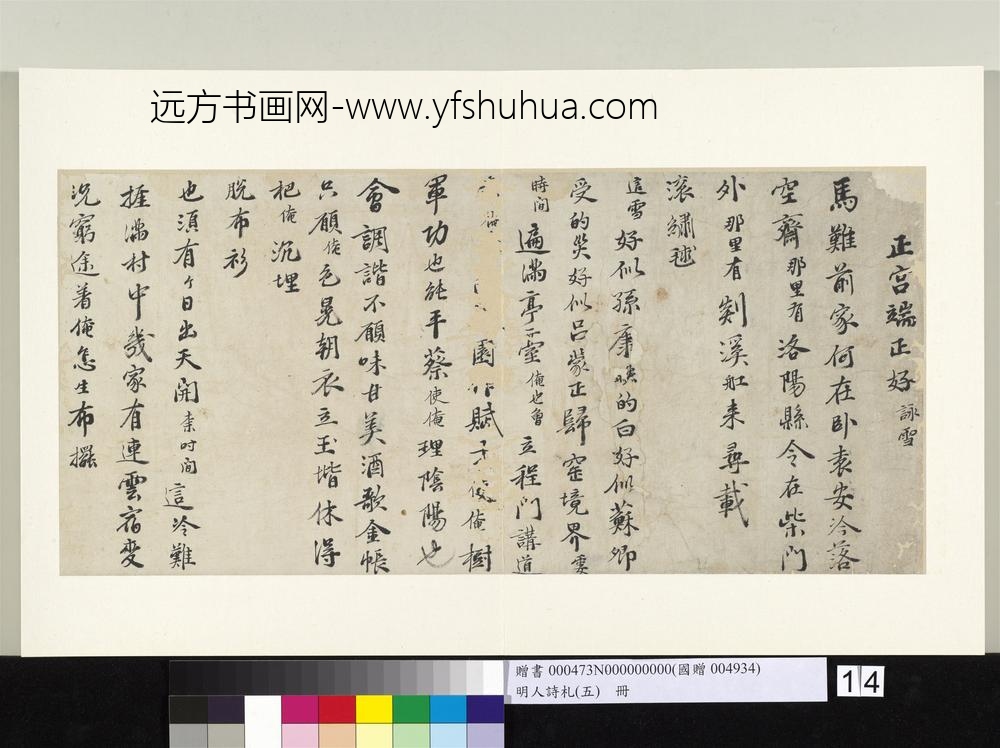 远方书画网-www.yfshuhua.com
正宮端正好 詠雪
馬難前家何在臥袁安冷落
空齋那里有洛陽縣令在柴門
外那里有剡溪舡来尋載
滚繡毬
這雪好似孫康映的白好似蘇卿
受的災好似呂蒙正歸窑境界霎
時间遍滿亭臺俺也曾立程門講道
園 賦 俺樹
軍功也能平蔡使俺理陰陽也
會調諧不顧味甘美酒歌金帳
只顧俺色晃朝衣立玉堦休得
把俺沉埋
脱布衫
也須有个日出天開来时间這冷難
捱滿村中幾家有連雲宿麥
況窮途着俺怎生布擺
贈書 000473N000000000(國贈 004934)
明人詩札(五) 冊
14